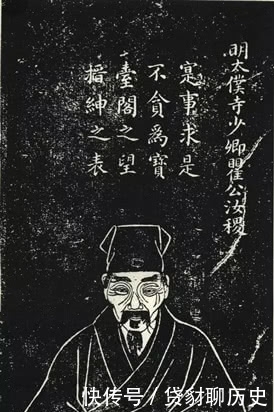 明太僕寺少卿瞿公汝稷
寔事求是
不貪為寶
臺閣之望
搢紳之表
快传号/贷豺聊历史